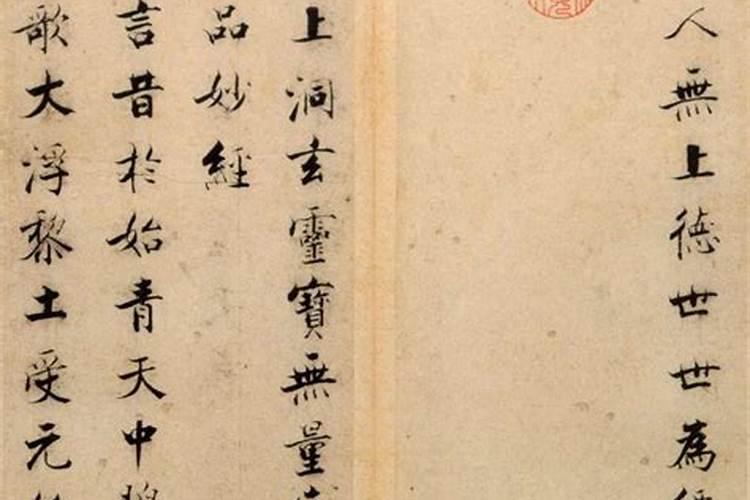 人無上德世世為
上洞玄靈寶無量
品妙經
言昔於始青天中碧
歌大浮黎土受元